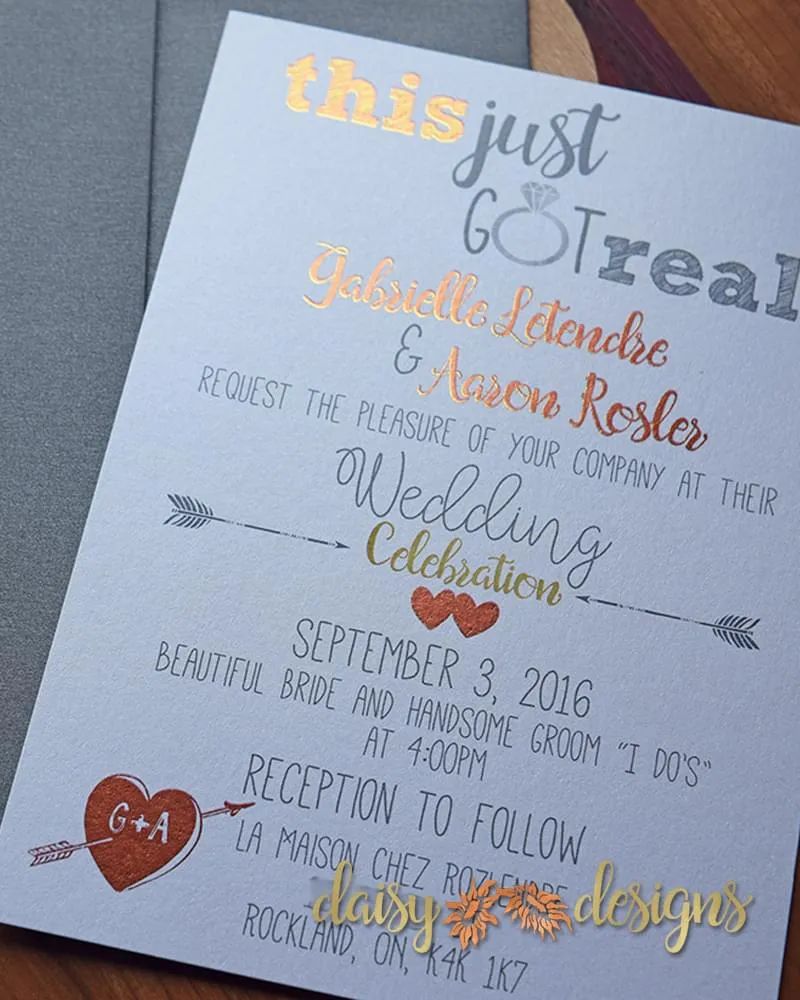 this just
GOT real
Gabrielle Letendre
& Aaron Rosler
REQUEST THE PLEASURE OF YOUR COMPANY AT THEIR
Wedding
Celebration
SEPTEMBER 3, 2016
BEAUTIFUL BRIDE AND HANDSOME GROOM "I DO'S"
AT 4:00PM
RECEPTION TO FOLLOW
G+A
LA MAISON CHEZ ROZLENDRE
daisy designs
ROCKLAND, ON, K4K 1K7